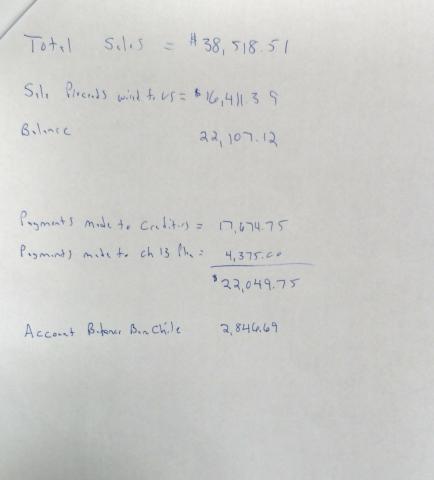 Total Sales = $38,518.51
Sale Proceeds wired to US = $16,411.39
Balance 22,107.12
Payments made to Creditors = 17,674.75
Payments made to ch 13 Plan = 4,375.00
$22,049.75
Account Balance BanChile 2,846.69